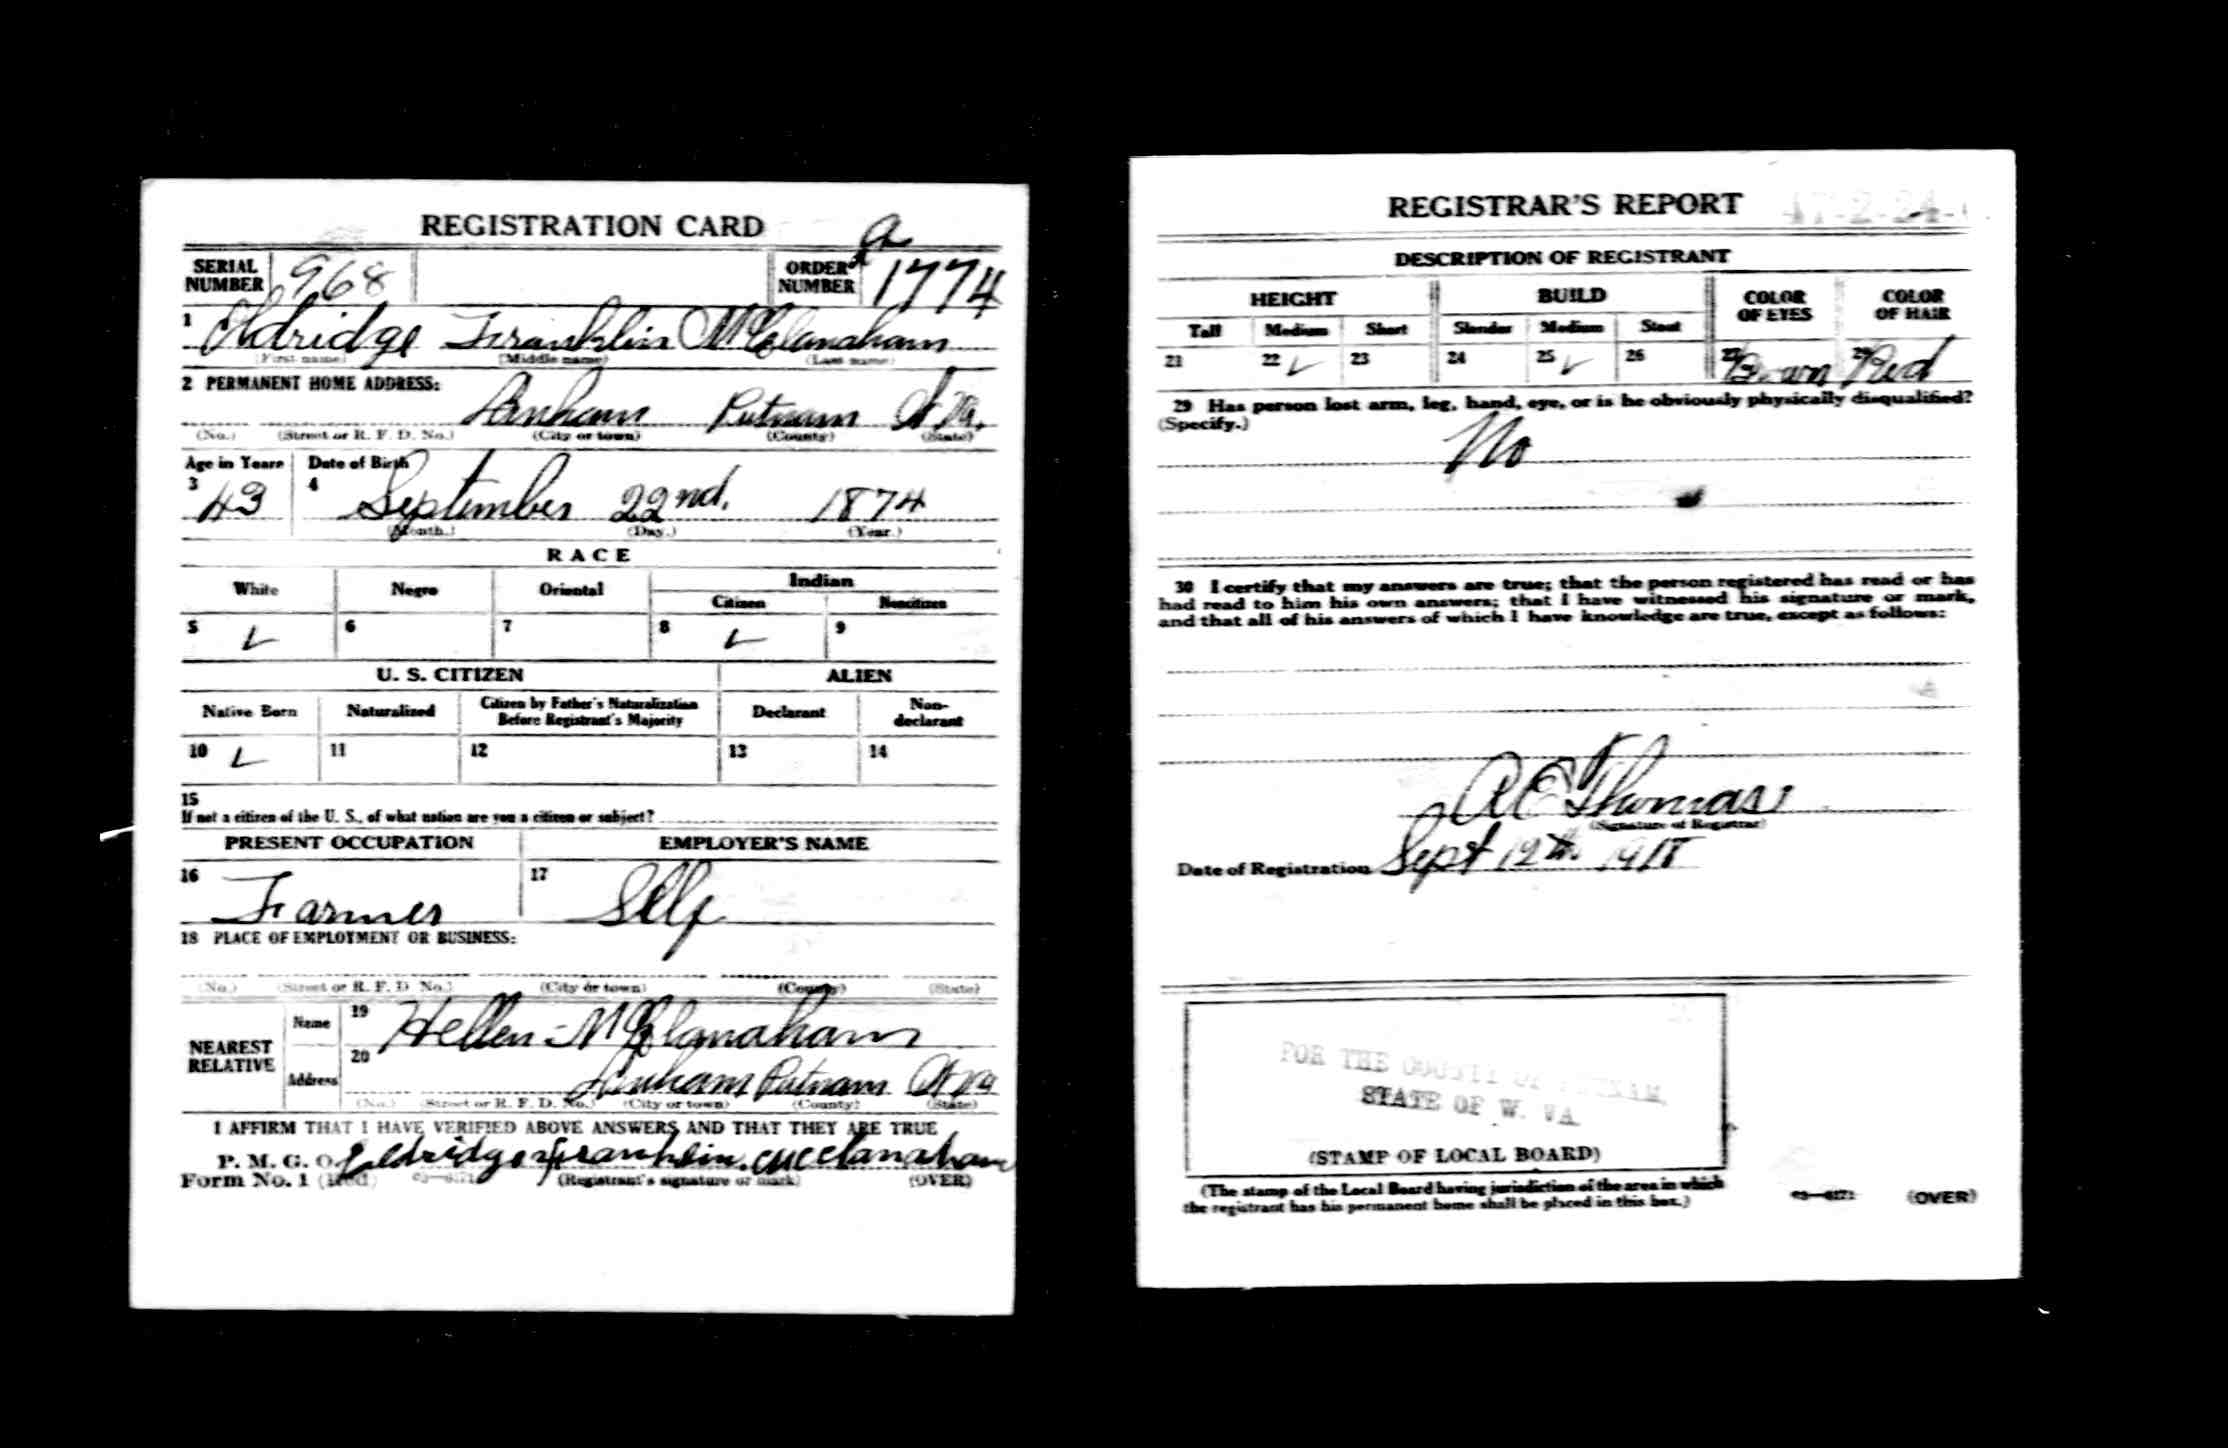 REGISTRATION CARD
SERIAL NUMBER 968 ORDER NUMBER A 1774
1 Eldridge Franklin McClanaham
(First name) (Middle name) (Last name)
2 PERMANENT HOME ADDRESS:
Putnam W Va.
(No.) (Street or R. F. D. No.) (City or town) (County) (State)
Age in Years Date of Birth
3 43 4 September 22nd. 1874
(Month.) (Day.) (Year.)
RACE
White Negro Oriental Indian
Citizen Noncitizen
5 ✓ 6 7 8 ✓ 9
U. S. CITIZEN ALIEN
Native Born Naturalized Citizen by Father's Naturalization Before Registrant's Majority Declarant Non-declarant
10 ✓ 11 12 13 14
15
If not a citizen of the U. S., of what nation are you a citizen or subject?
PRESENT OCCUPATION EMPLOYER'S NAME
16 Farmer 17 Self
18 PLACE OF EMPLOYMENT OR BUSINESS:
(No.) (Street or R. F. D. No.) (City or town) (County) (State)
NEAREST RELATIVE
Name 19 Hellen McClanaham
Address 20 Putnam W Va
(No.) (Street or R. F. D. No.) (City or town) (County) (State)
I AFFIRM THAT I HAVE VERIFIED ABOVE ANSWERS AND THAT THEY ARE TRUE
P. M. G. O. Eldridge Franklin McClanaham
Form No. 1 (Red) (Registrant's signature or mark) (OVER)
REGISTRAR'S REPORT
DESCRIPTION OF REGISTRANT
HEIGHT BUILD COLOR OF EYES COLOR OF HAIR
Tall Medium Short Slender Medium Stout
21 22 ✓ 23 24 25 ✓ 26 27 Brown 28 Red
29 Has person lost arm, leg, hand, eye, or is he obviously physically disqualified?
(Specify.)
No
30 I certify that my answers are true; that the person registered has read or has
had read to him his own answers; that I have witnessed his signature or mark,
and that all of his answers of which I have knowledge are true, except as follows:
A E Thomas
(Signature of Registrar)
Date of Registration Sept 12th. 1918
FOR THE COUNTY OF PUTNAM,
STATE OF W. VA
(STAMP OF LOCAL BOARD)
(The stamp of the Local Board having jurisdiction of the area in which
the registrant has his permanent home shall be placed in this box.)
03—6171 (OVER)